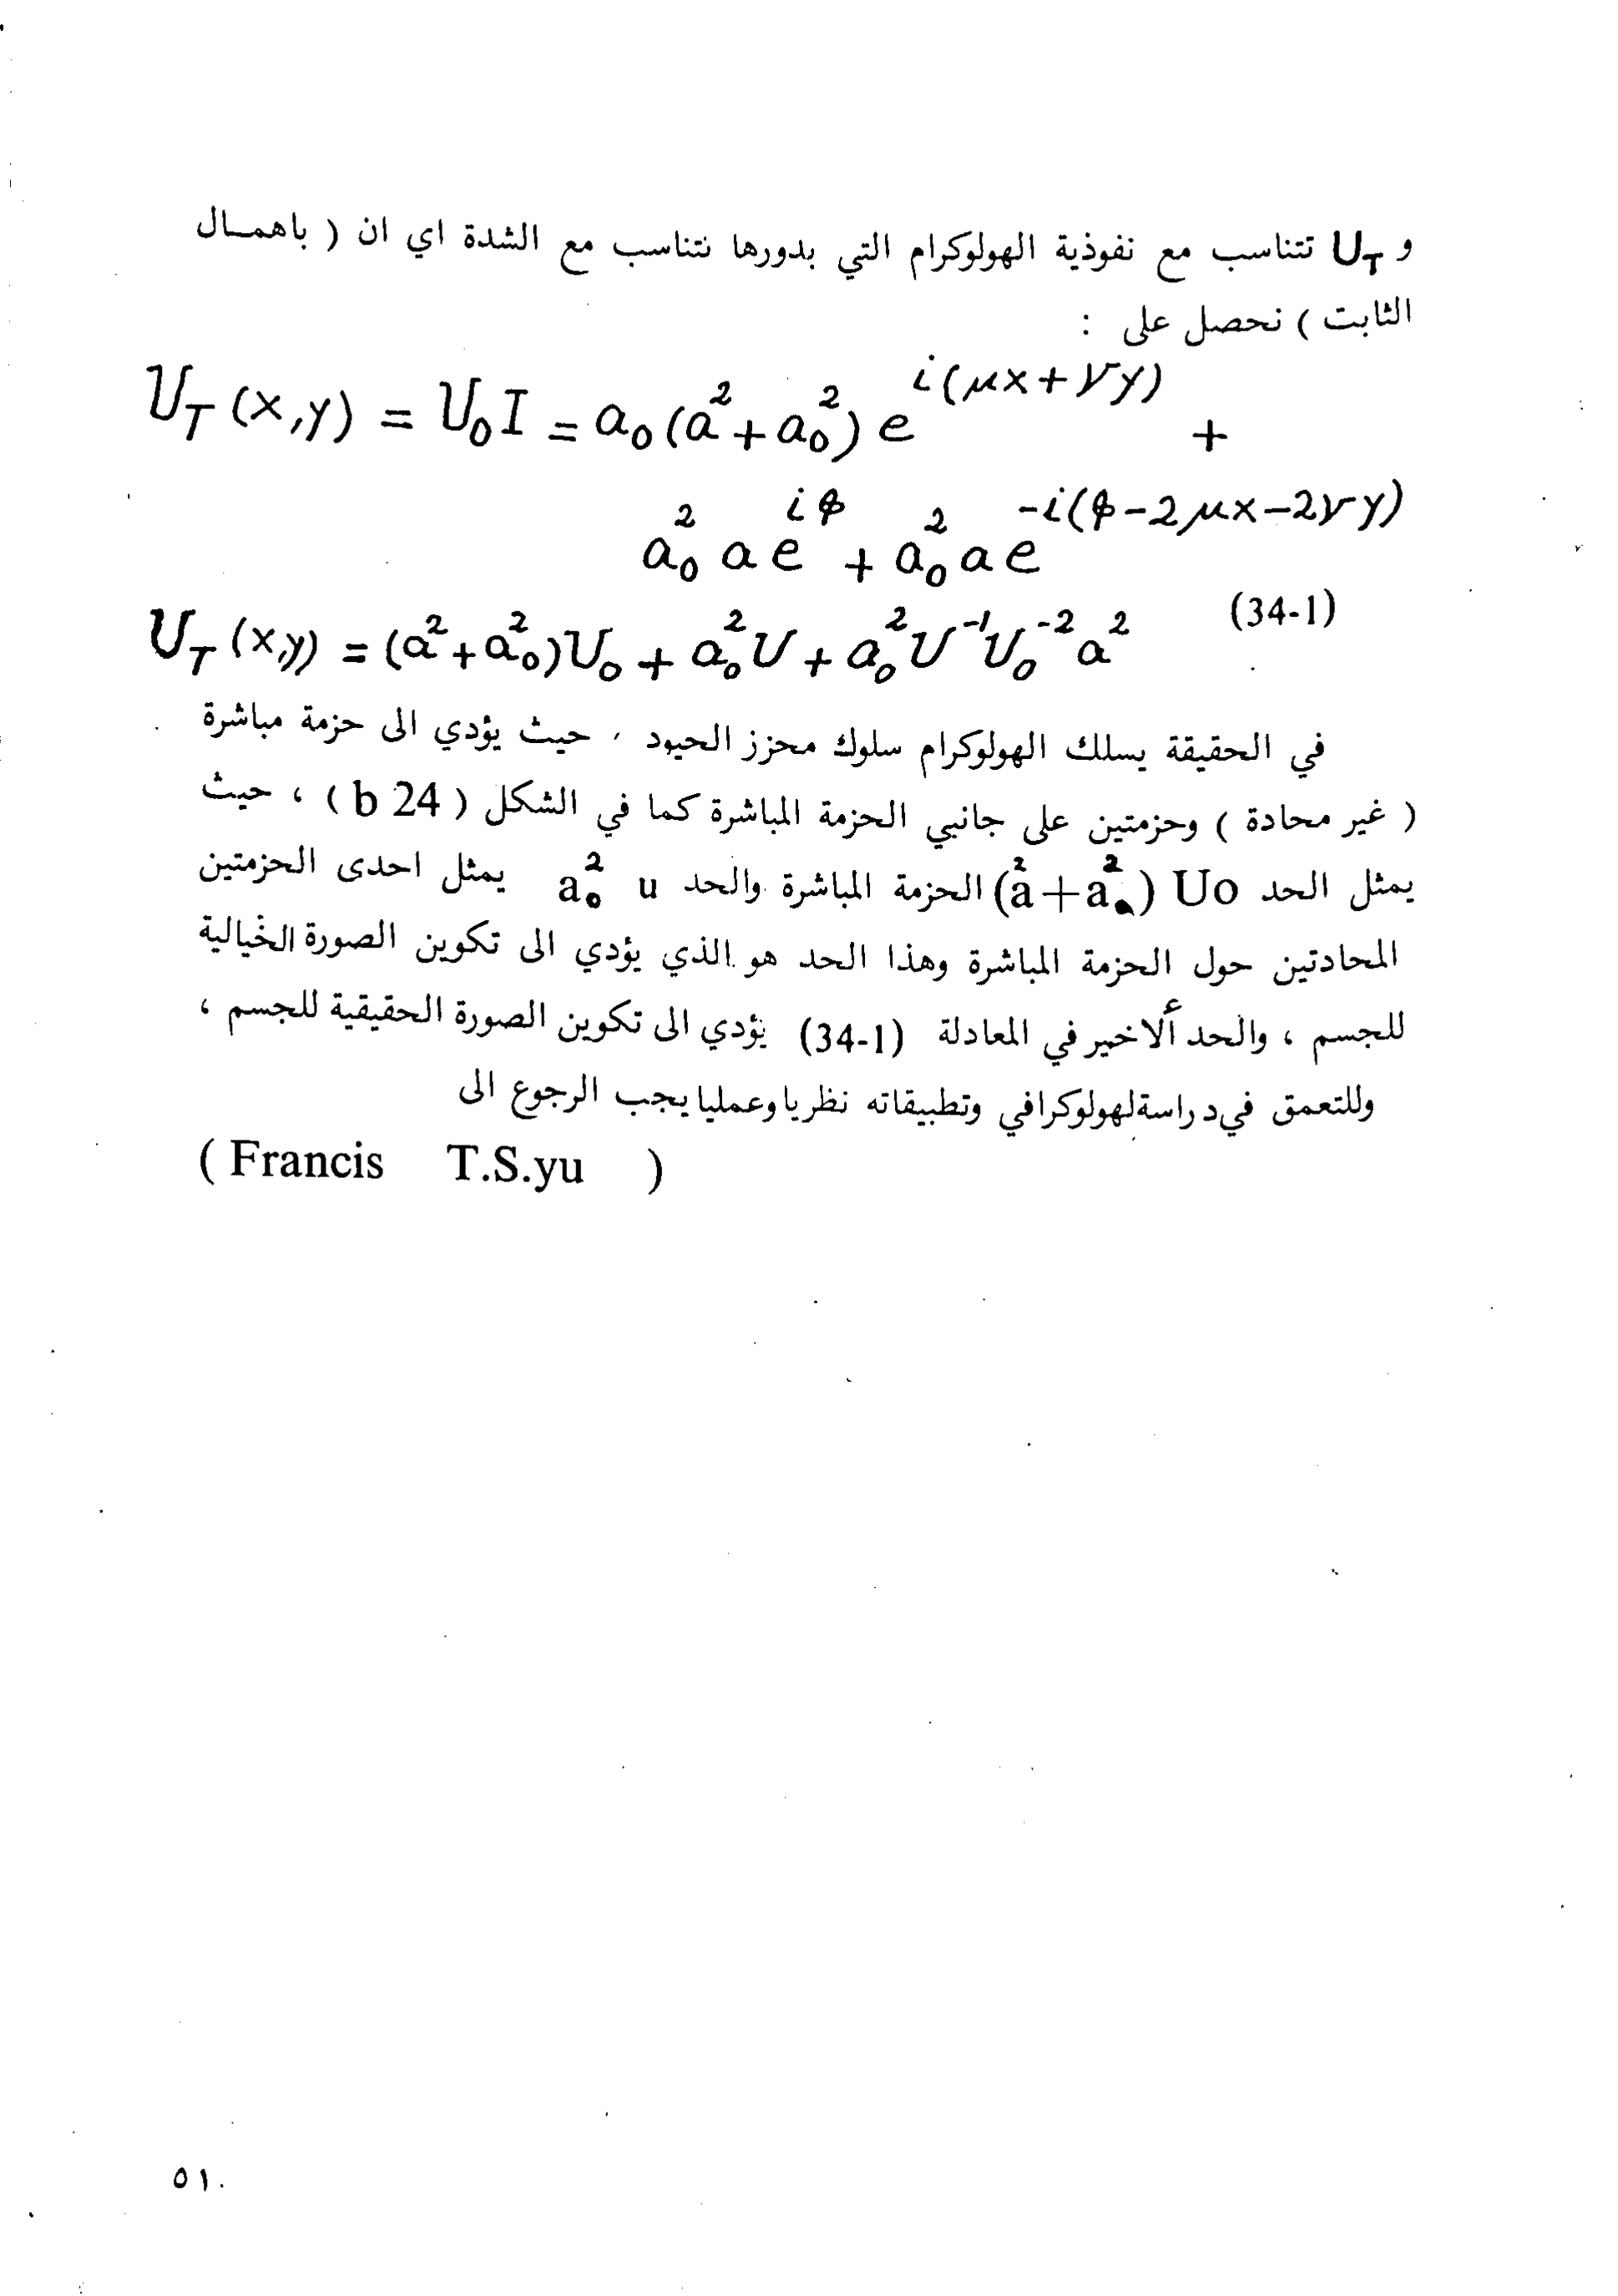 و U_T تتناسب مع نفوذية الهولوكرام التي بدورها تتناسب مع الشدة اي ان ( باهمــال
الثابت ) نحصل على :
U_T (x,y) = U₀I = a₀(a² + a₀²) e^{i(μx+νy)} +
a₀² a e^{iφ} + a₀² a e^{-i(φ-2μx-2νy)}
(34-1)
U_T (x,y) = (a²+a₀²)U₀ + a₀²U + a₀²U⁻¹U₀⁻²a²
في الحقيقة يسلك الهولوكرام سلوك محزز الحيود ، حيث يؤدي الى حزمة مباشرة
( غير محادة ) وحزمتين على جانبي الحزمة المباشرة كما في الشكل ( 24 b ) ، حيث
يمثل الحد (a²+a₀²) Uo الحزمة المباشرة والحد a₀² u يمثل احدى الحزمتين
المحادتين حول الحزمة المباشرة وهذا الحد هو الذي يؤدي الى تكوين الصورة الخيالية
للجسم ، والحد ألاخير في المعادلة (34-1) يؤدي الى تكوين الصورة الحقيقية للجسم ،
وللتعمق في دراسة لهولوكرافي وتطبيقاته نظريا وعمليا يجب الرجوع الى
( Francis T.S.yu )
٥١.